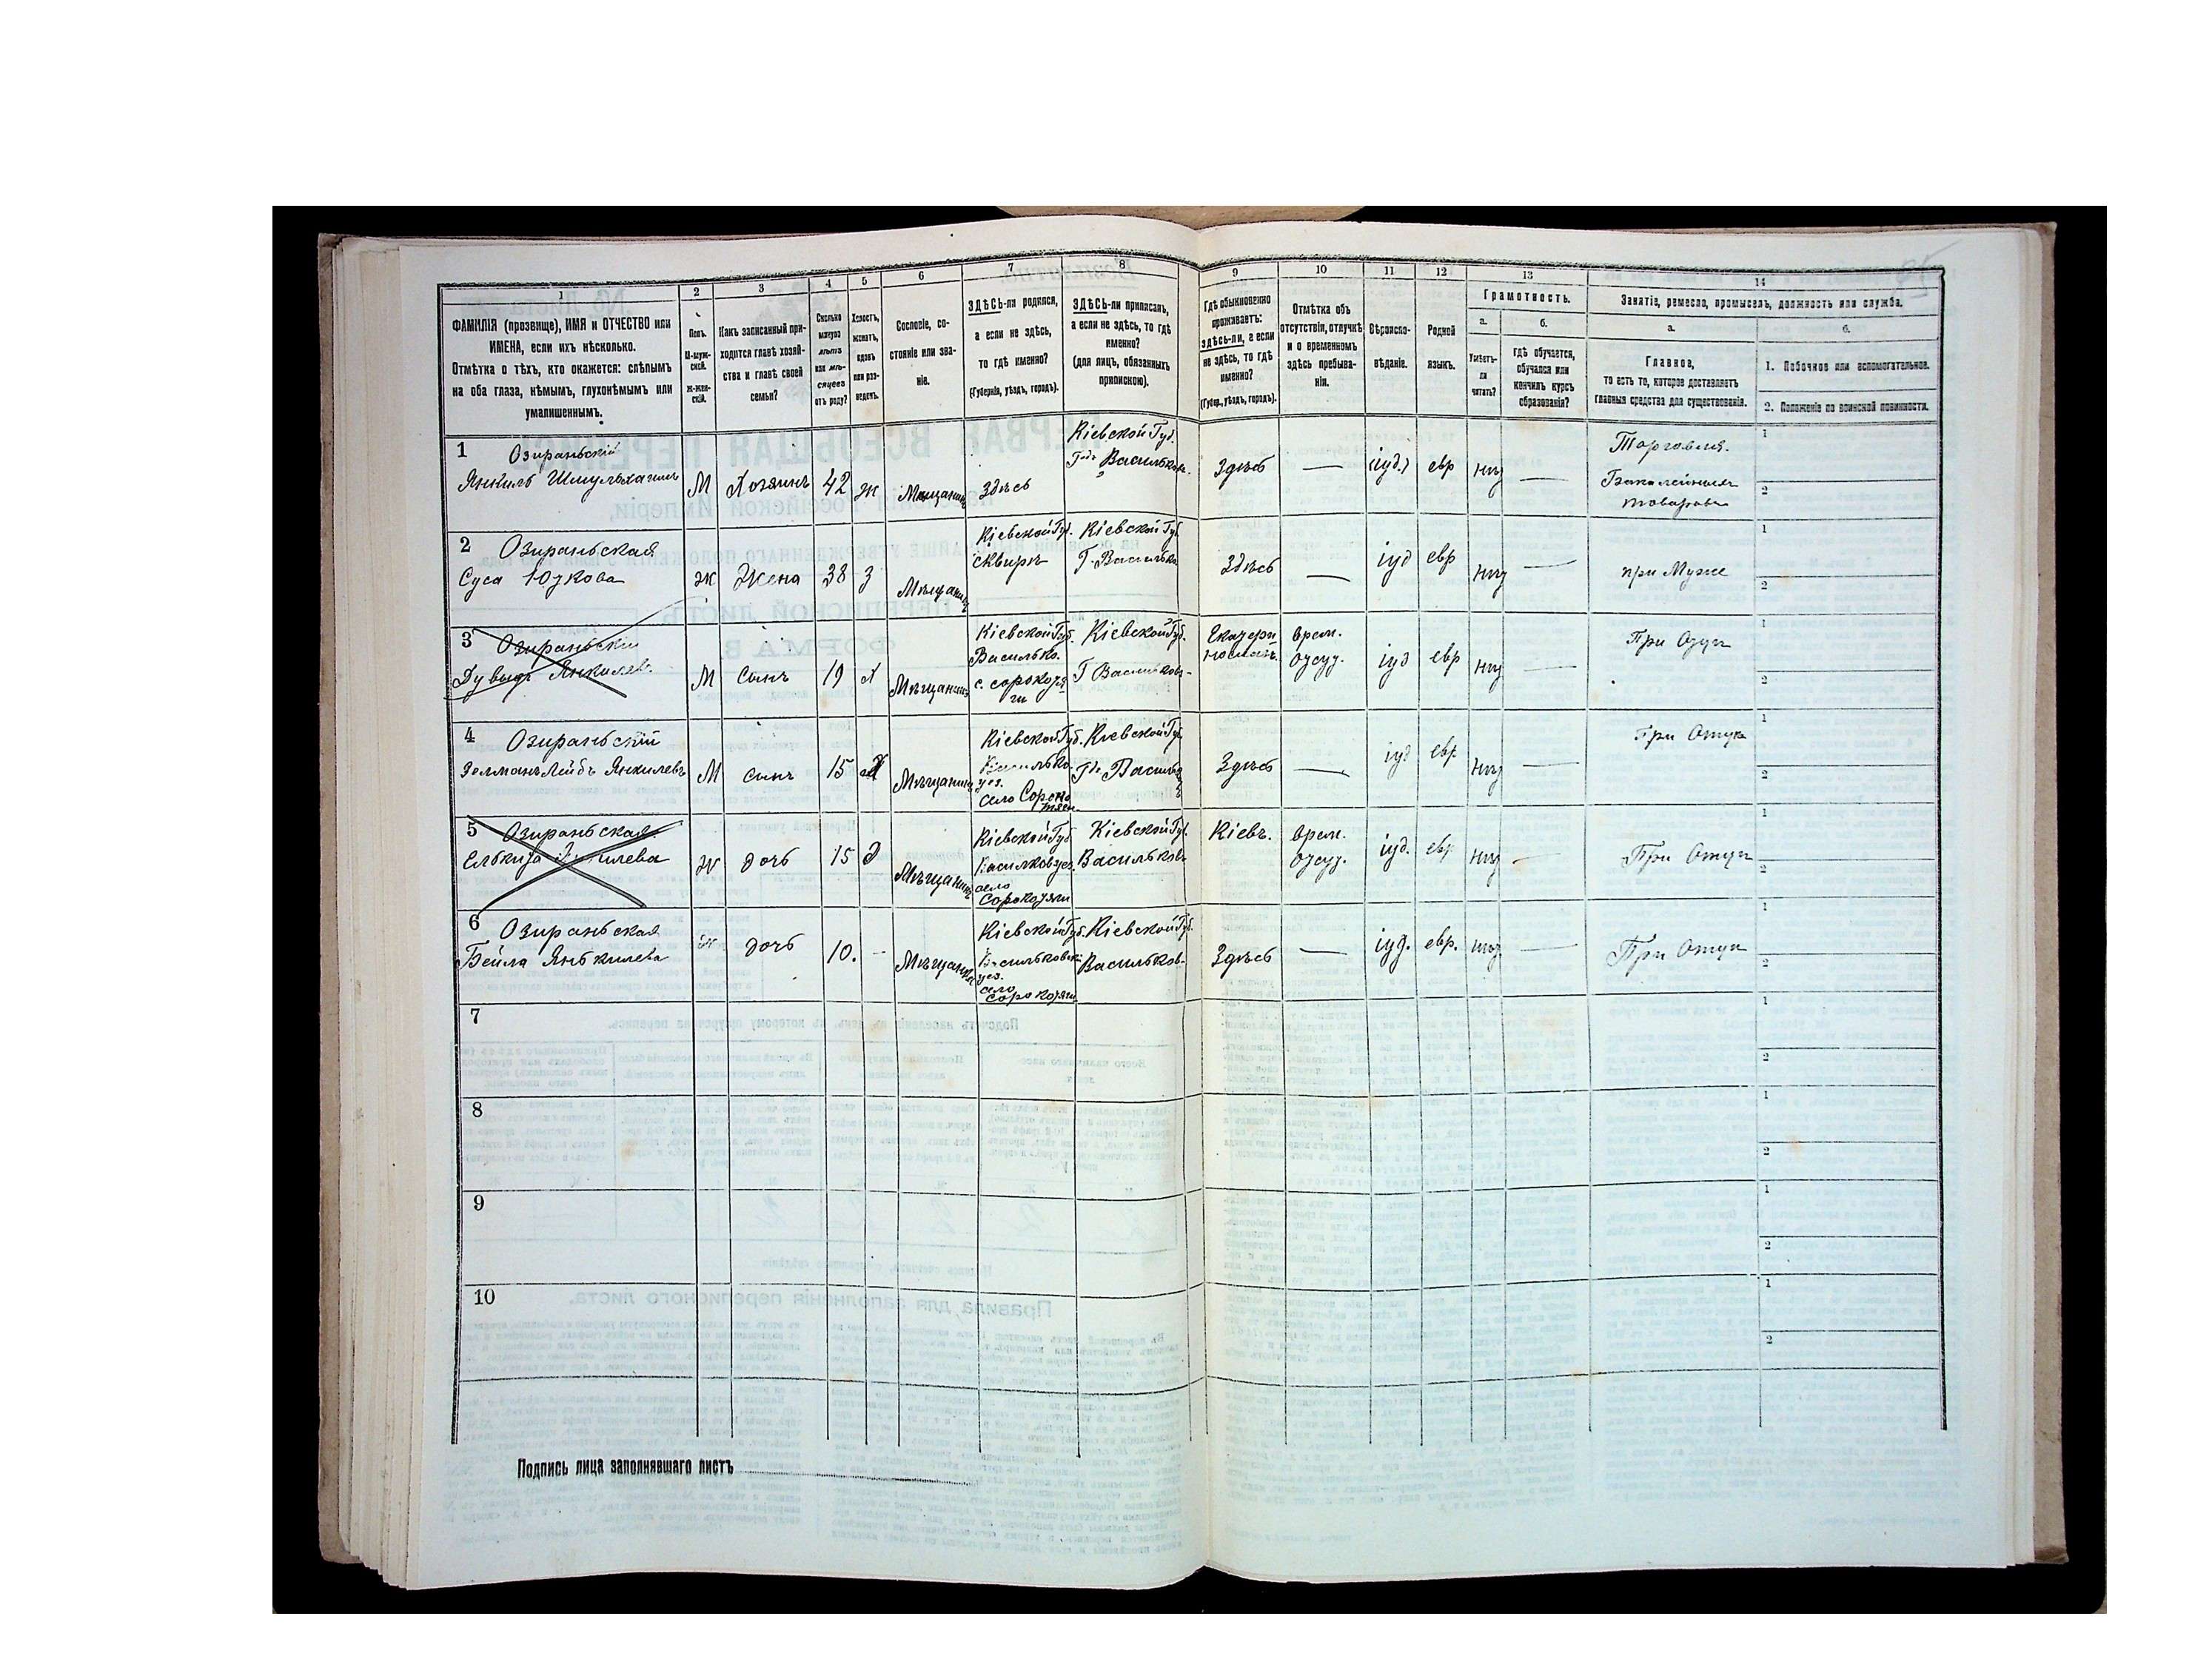 1
2
3
4
5
6
7
8
9
10
11
12
13
14
ФАМИЛІЯ (прозвище), ИМЯ и ОТЧЕСТВО или
ИМЕНА, если ихъ нѣсколько.
Отмѣтка о тѣхъ, кто окажется: слѣпымъ
на оба глаза, нѣмымъ, глухонѣмымъ или
умалишеннымъ.
Полъ.
М-муж-
ской.
Ж-жен-
скій.
Какъ записанный при-
ходится главѣ хозяй-
ства и главѣ своей
семьи?
Сколько
минуло
лѣтъ
или мѣ-
сяцевъ
отъ роду?
Холостъ,
женатъ,
вдовъ
или раз-
веденъ.
Сословіе, со-
стояніе или зва-
ніе.
ЗДѢСЬ-ли родился,
а если не здѣсь,
то гдѣ именно?
(Губернія, уѣздъ, городъ).
ЗДѢСЬ-ли приписанъ,
а если не здѣсь, то гдѣ
именно?
(для лицъ, обязанныхъ
припискою).
Гдѣ обыкновенно
проживаетъ:
здѣсь-ли, а если
не здѣсь, то гдѣ
именно?
(Губер., уѣздъ, городъ).
Отмѣтка объ
отсутствіи, отлучкѣ
и о временномъ
здѣсь пребыва-
ніи.
Вѣроиспо-
вѣданіе.
Родной
языкъ.
Грамотность.
а.
Умѣетъ-
ли
читать?
б.
Гдѣ обучается,
обучался или
кончилъ курсъ
образованія?
Занятіе, ремесло, промыселъ, должность или служба.
а.
Главное,
то есть то, которое доставляетъ
главныя средства для существованія.
б.
1. Побочное или вспомогательное.
2. Положеніе по воинской повинности.
1
Озираньскій
Янкиль
М
Хозяинъ
42
ж
Мещанинъ
здѣсь
Кіевской Губ.
Васильков.
Здѣсь
—
іуд.
евр
—
Торговля.
Бакалейныхъ
товаровъ
1
2
2
Озираньская
Суса Юзкова
ж
Жена
38
з
Мѣщанинъ
Кіевской Губ.
Сквиръ
Кіевской Губ.
Здѣсь
—
іуд
евр
—
при Муже
1
2
3
Озираньскій
М
сынъ
19
х
Мѣщанинъ
Кіевской Губ.
Василько.
с. сорокотя
ги
Кіевской Губ.
Екатери
врем.
отсут.
іуд
евр
—
При Отцѣ
1
2
4
Озираньскій
Зелманъ Лейбъ Янкилевъ
М
сынъ
15
Мѣщанинъ
Кіевской Губ.
Василько.
уез.
село
Кіевской Губ.
Здѣсь
—
іуд
евр
—
При Отцѣ
1
2
5
Озираньская
ж
дочь
15
д
Мѣщанинъ
Кіевской Губ
село
Сорокотяги
Кіевской Губ.
Васильков
Кіевъ.
врем.
отсут.
іуд.
евр
—
При Отцѣ
1
2
6
Озираньская
Бейла Янькилева
ж
дочь
10.
—
Кіевской Губ.
Васильковск
уез.
село
сорокотяги
Кіевской Губ.
Васильков.
Здѣсь
—
іуд.
евр.
—
При Отцѣ
1
2
7
1
2
8
1
2
9
1
2
10
1
2
Подпись лица заполнявшаго листъ